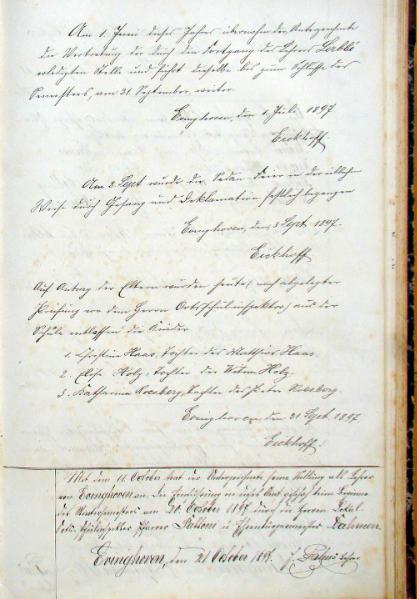 Am 1. Juni dieses Jahres übernahm der Unterzeichnete
die Vertretung der durch den Fortgang des Lehrers
erledigten Stelle und führt dieselbe bis zum Schlusse des
Semesters, am 21. September, weiter.
Evinghoven, den 1. Juli 1897
Eickhoff
Am 2. Sept wurde die Sedan Feier in der üblichen
Weise durch Gesang und Deklamation festlich begangen
Evinghoven, den 3. Sept. 1897.
Eickhoff
Auf Antrag der Eltern wurden heute, nach abgelegter
Prüfung vor dem Herrn Ortsschulinspektor, aus der
Schule entlassen die Kinder
1. Christine Haas, Tochter des Matthias Haas.
2. Holz, Tochter der Witwe Holz.
3. Katharina Tochter des Peter
Evinghoven, den 21. Sept. 1897
Eickhoff.
Mit dem October trat der Unterzeichnete seine Stellung als Lehrer
von Evinghoven an. Die Einführung in sein Amt geschah beim Beginne
des Wintersemesters am 20. October 1897 durch die Herren Lokal-
Schulinspektor Pfarrer und Bürgermeister
Evinghoven, den 21 October 1897. Lehrer